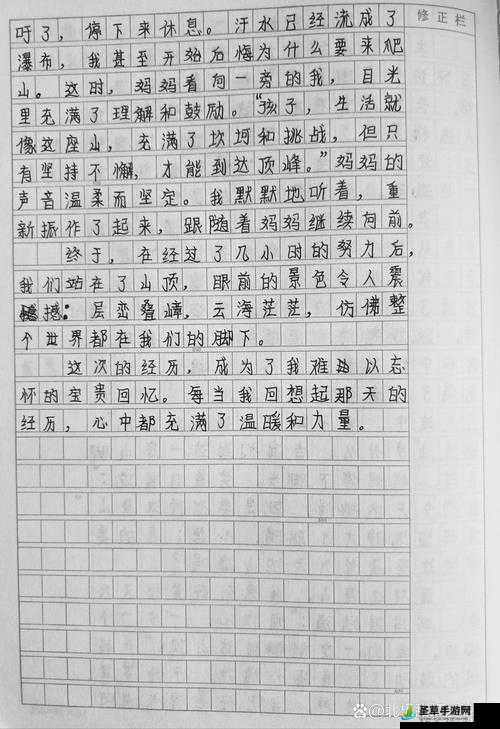 修正栏
吁了，停下来休息。汗水已经流成了
瀑布，我甚至开始后悔为什么要来爬
山。这时，妈妈看向一旁的我，目光
里充满了理解和鼓励。“孩子，生活就
像这座山，充满了坎坷和挑战，但只
有坚持不懈，才能到达顶峰。”妈妈的
声音温柔而坚定。我默默地听着，重
新振作了起来，跟随着妈妈继续向前。
终于，在经过了几小时的努力后，
我们站在了山顶，眼前的景色令人震
撼：层峦叠嶂，云海茫茫，仿佛整
个世界都在我们的脚下。
这次的经历，成为了我难以忘
怀的宝贵回忆。每当我回想起那天的
经历，心中都充满了温暖和力量。
圣草手游网